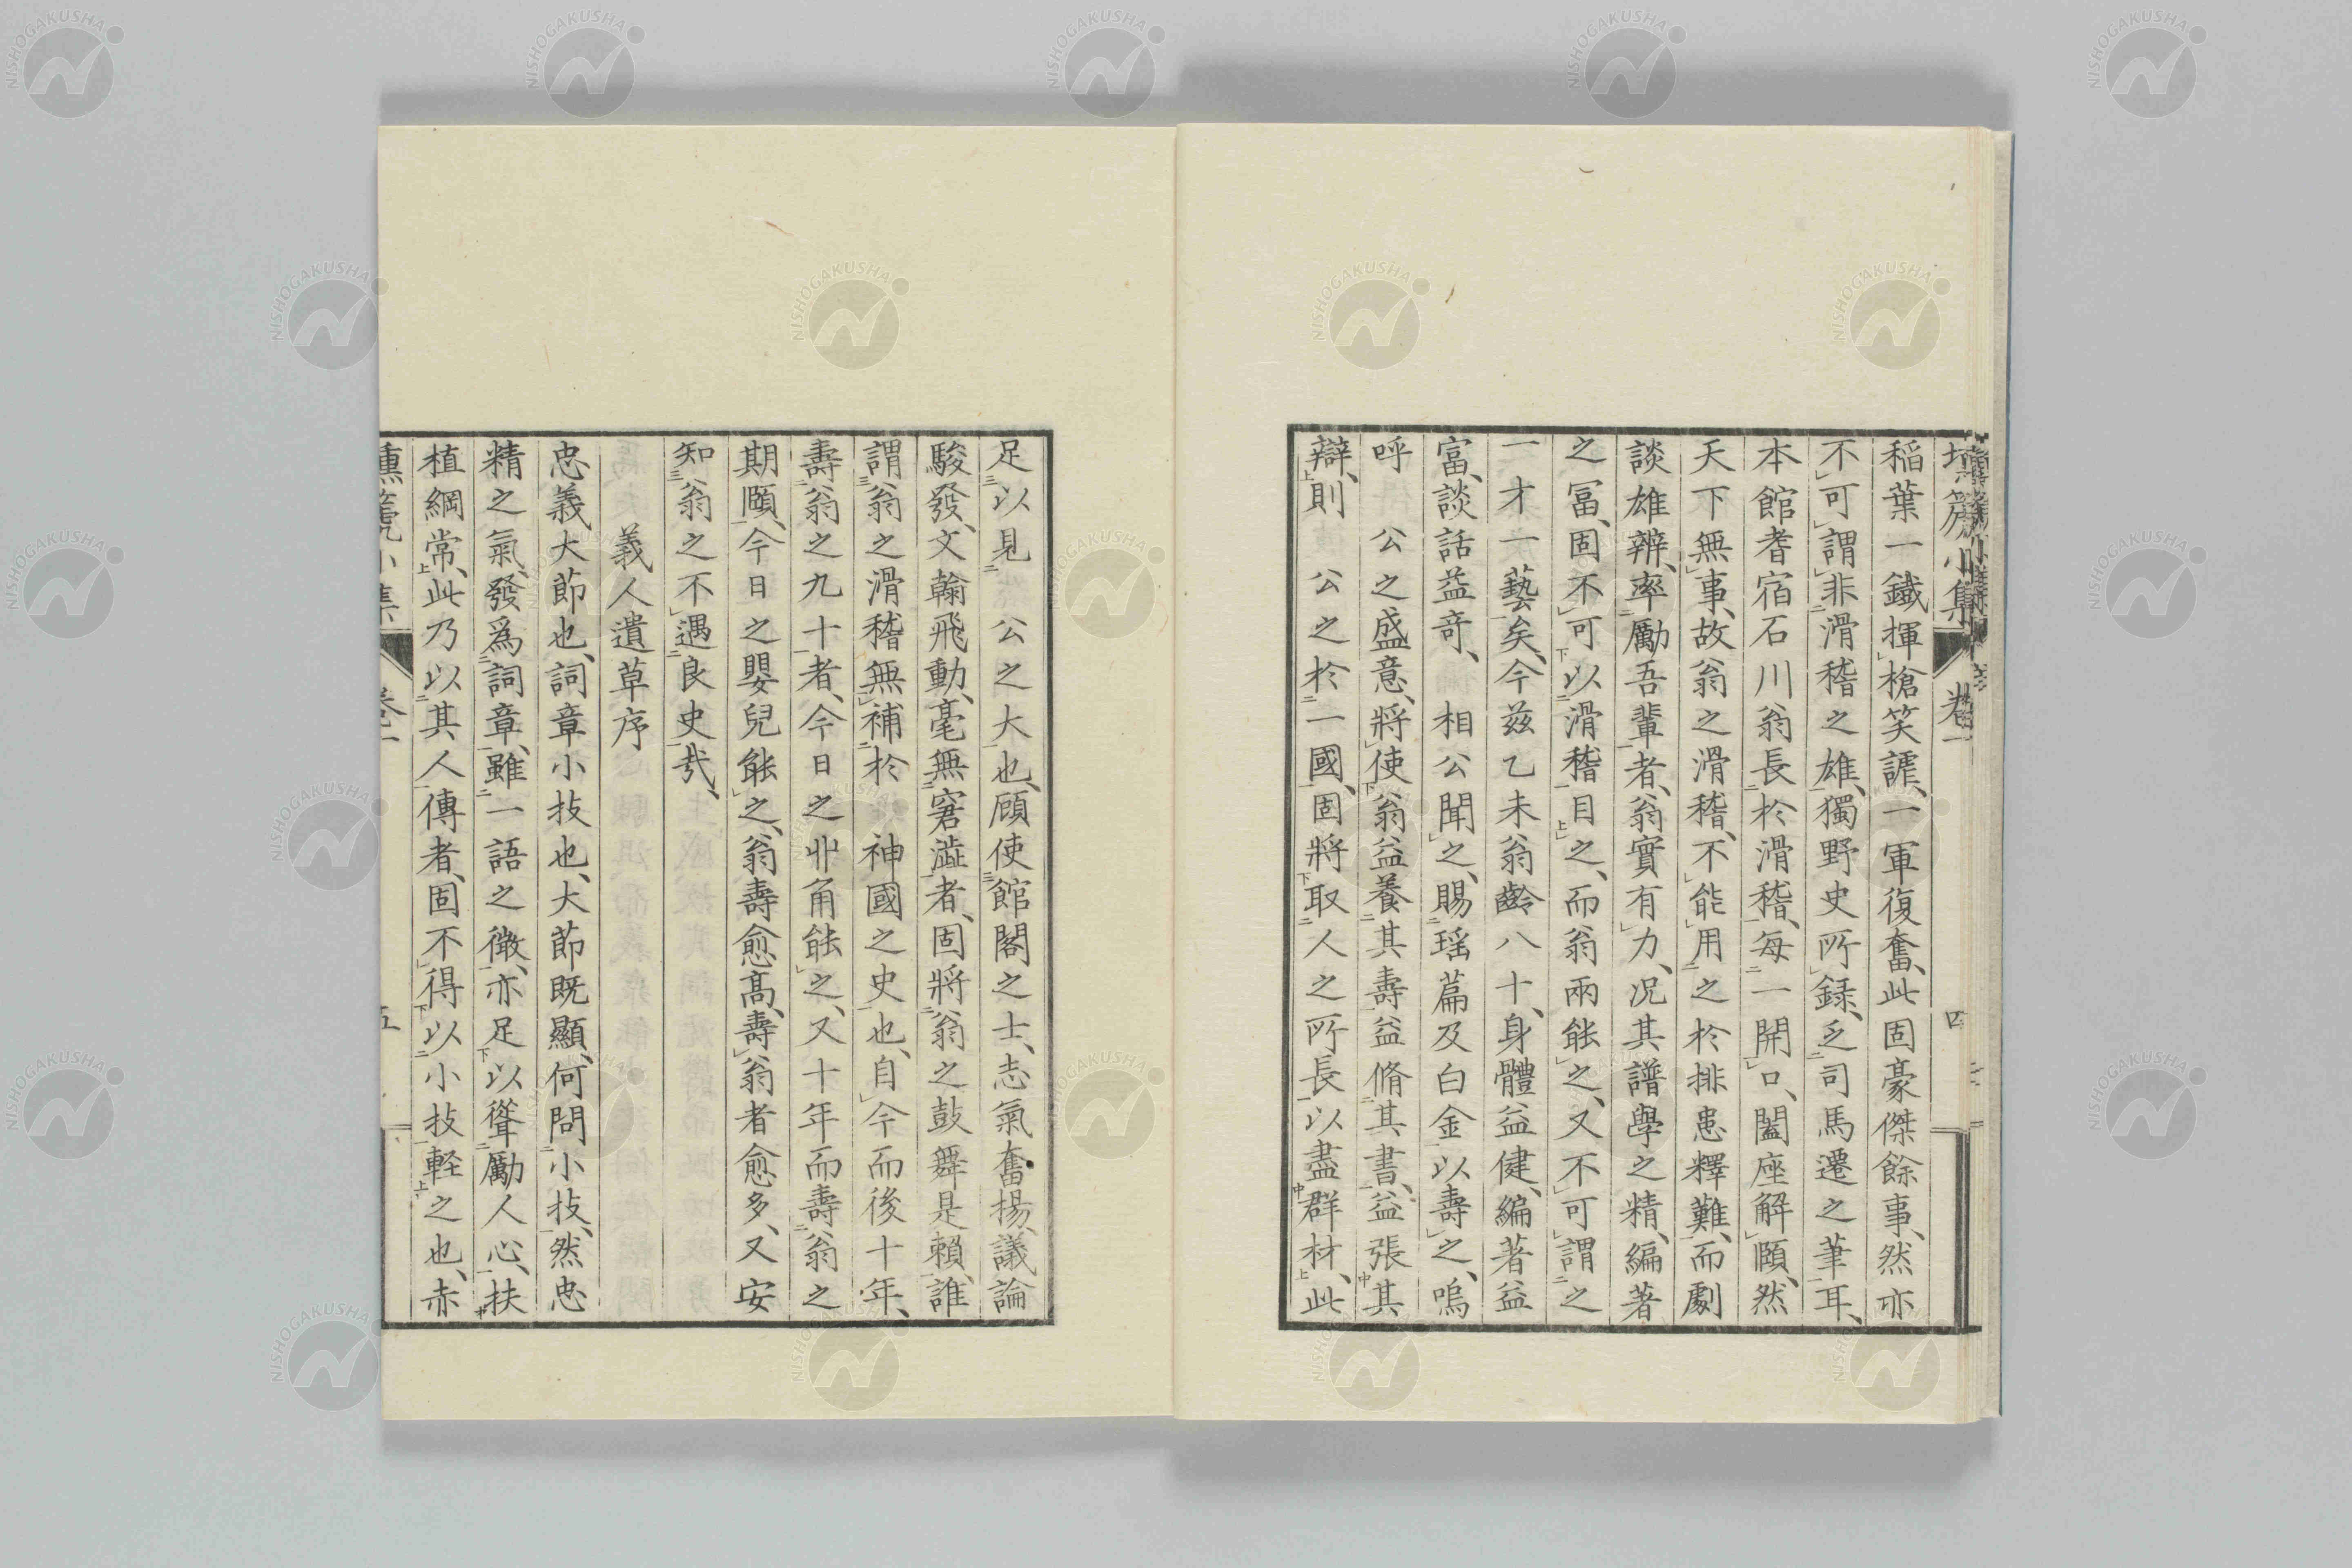 稲葉一鐵揮槍笑謔、一軍復奮、此固豪傑餘事、然亦
不可謂非滑稽之雄、獨野史所録、乏司馬遷之筆耳、
本館耆宿石川翁長於滑稽、毎一開口、闔座解頤、然
天下無事、故翁之滑稽、不能用之於排患釋難、而劇
談雄辨、率勵吾輩者、翁實有力、况其譜學之精、編著
之冨、固不可以滑稽目之、而翁兩能之、又不可謂之
一才一藝矣、今茲乙未翁齡八十、身體益健、編著益
富、談話益竒、相公聞之、賜瑶篇及白金以壽之、嗚
呼公之盛意、將使翁益養其壽益脩其書、益張其
辯、則公之於一國、固將取人之所長以盡群材、此
足以見公之大也、顧使館閣之士、志氣奮揚、議論
駿發、文翰飛動、毫無窘澁者、固將翁之鼓舞是賴、誰
謂翁之滑稽無補於神國之史也、自今而後十年、
壽翁之九十者、今日之丱角能之、又十年而壽翁之
期頤、今日之嬰兒能之、翁壽愈高、壽翁者愈多、又安
知翁之不遇良史哉、
義人遺草序
忠義大節也、詞章小技也、大節既顯、何問小技、然忠
精之氣、發爲詞章、雖一語之微、亦足以聳勵人心、扶
植綱常、此乃以其人傳者、固不得以小技軽之也、赤
卷一
四
小集
五